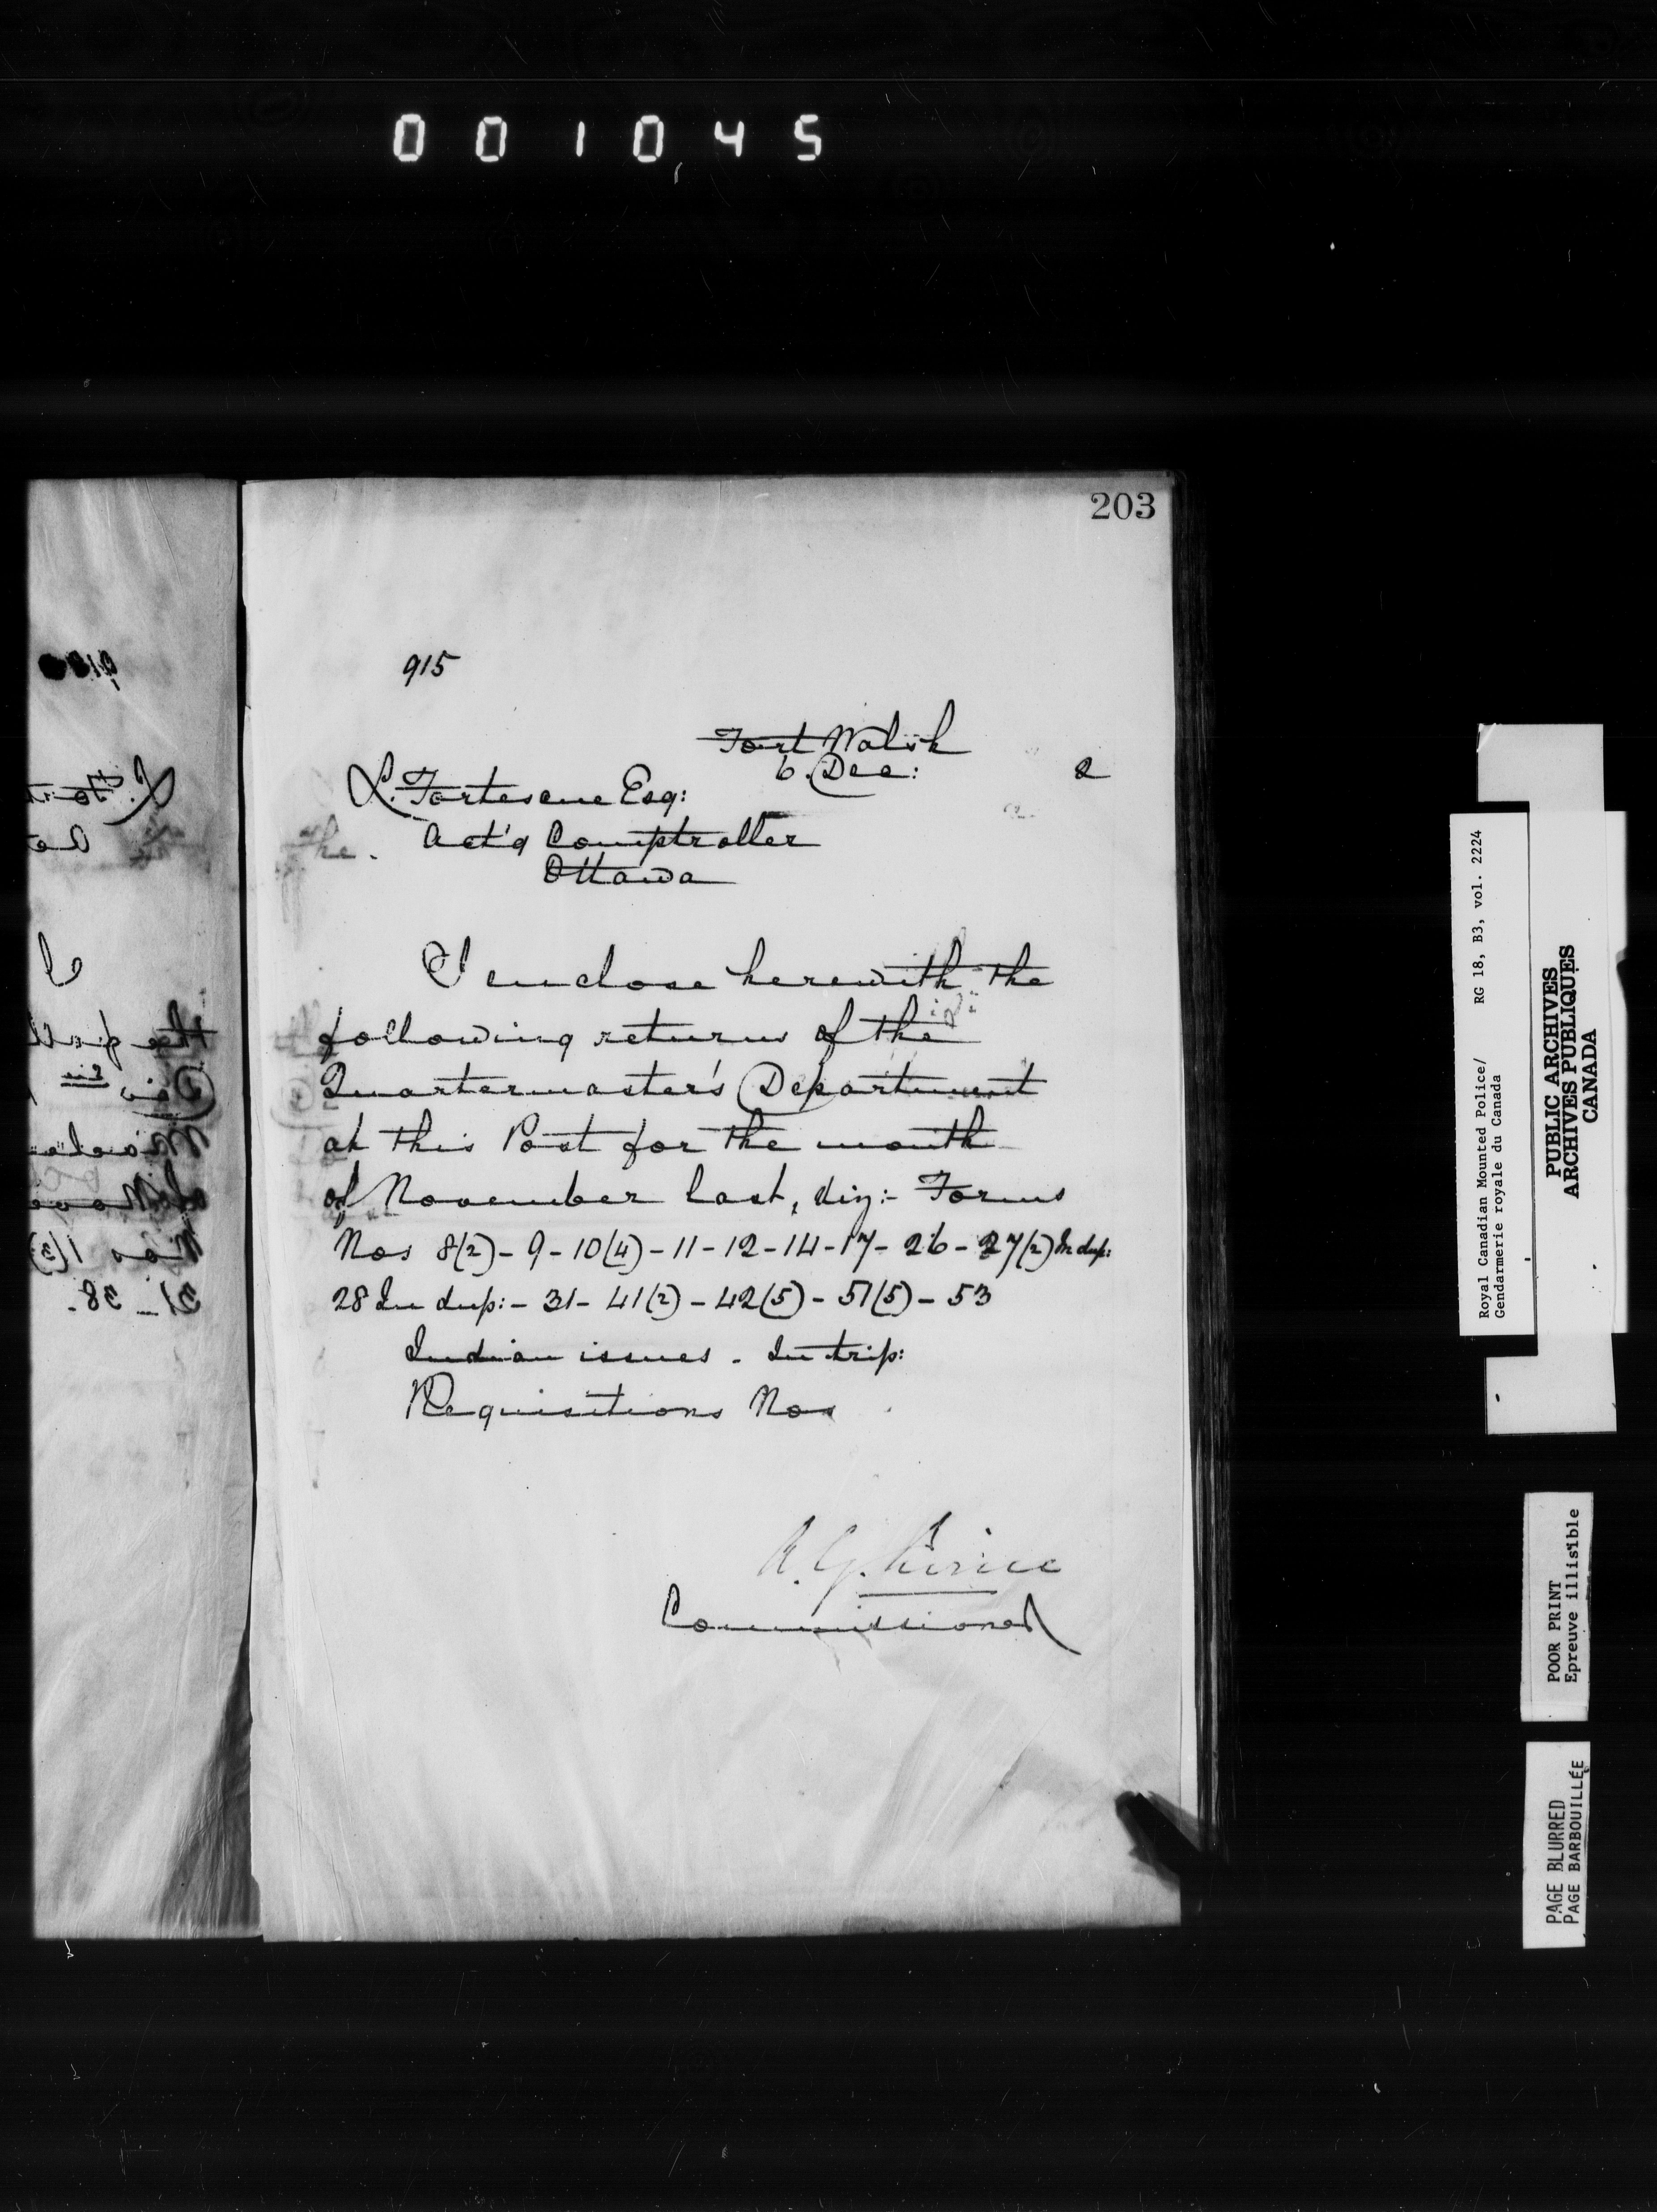 001045
203
915
Fort Walsh
6. Dec: 2
L. Fortescue Esq:
Act'g Comptroller
Ottawa
I enclose herewith the
following returns of the
Quartermaster's Department
at this Post for the month
of November last, viz:- Forms
Nos 8(2) - 9 - 10(4) - 11 - 12 - 14 - 17 - 26 - 27(2) In dup:
28 In dup: - 31 - 41(2) - 42(5) - 51(5) - 53
Indian issues - In trip:
Requisitions Nos
A. G. Irvine
Commissioner
Royal Canadian Mounted Police/ RG 18, B3, vol. 2224
Gendarmerie royale du Canada
PUBLIC ARCHIVES
ARCHIVES PUBLIQUES
CANADA
POOR PRINT
Epreuve illisible
PAGE BLURRED
PAGE BARBOUILLÉE